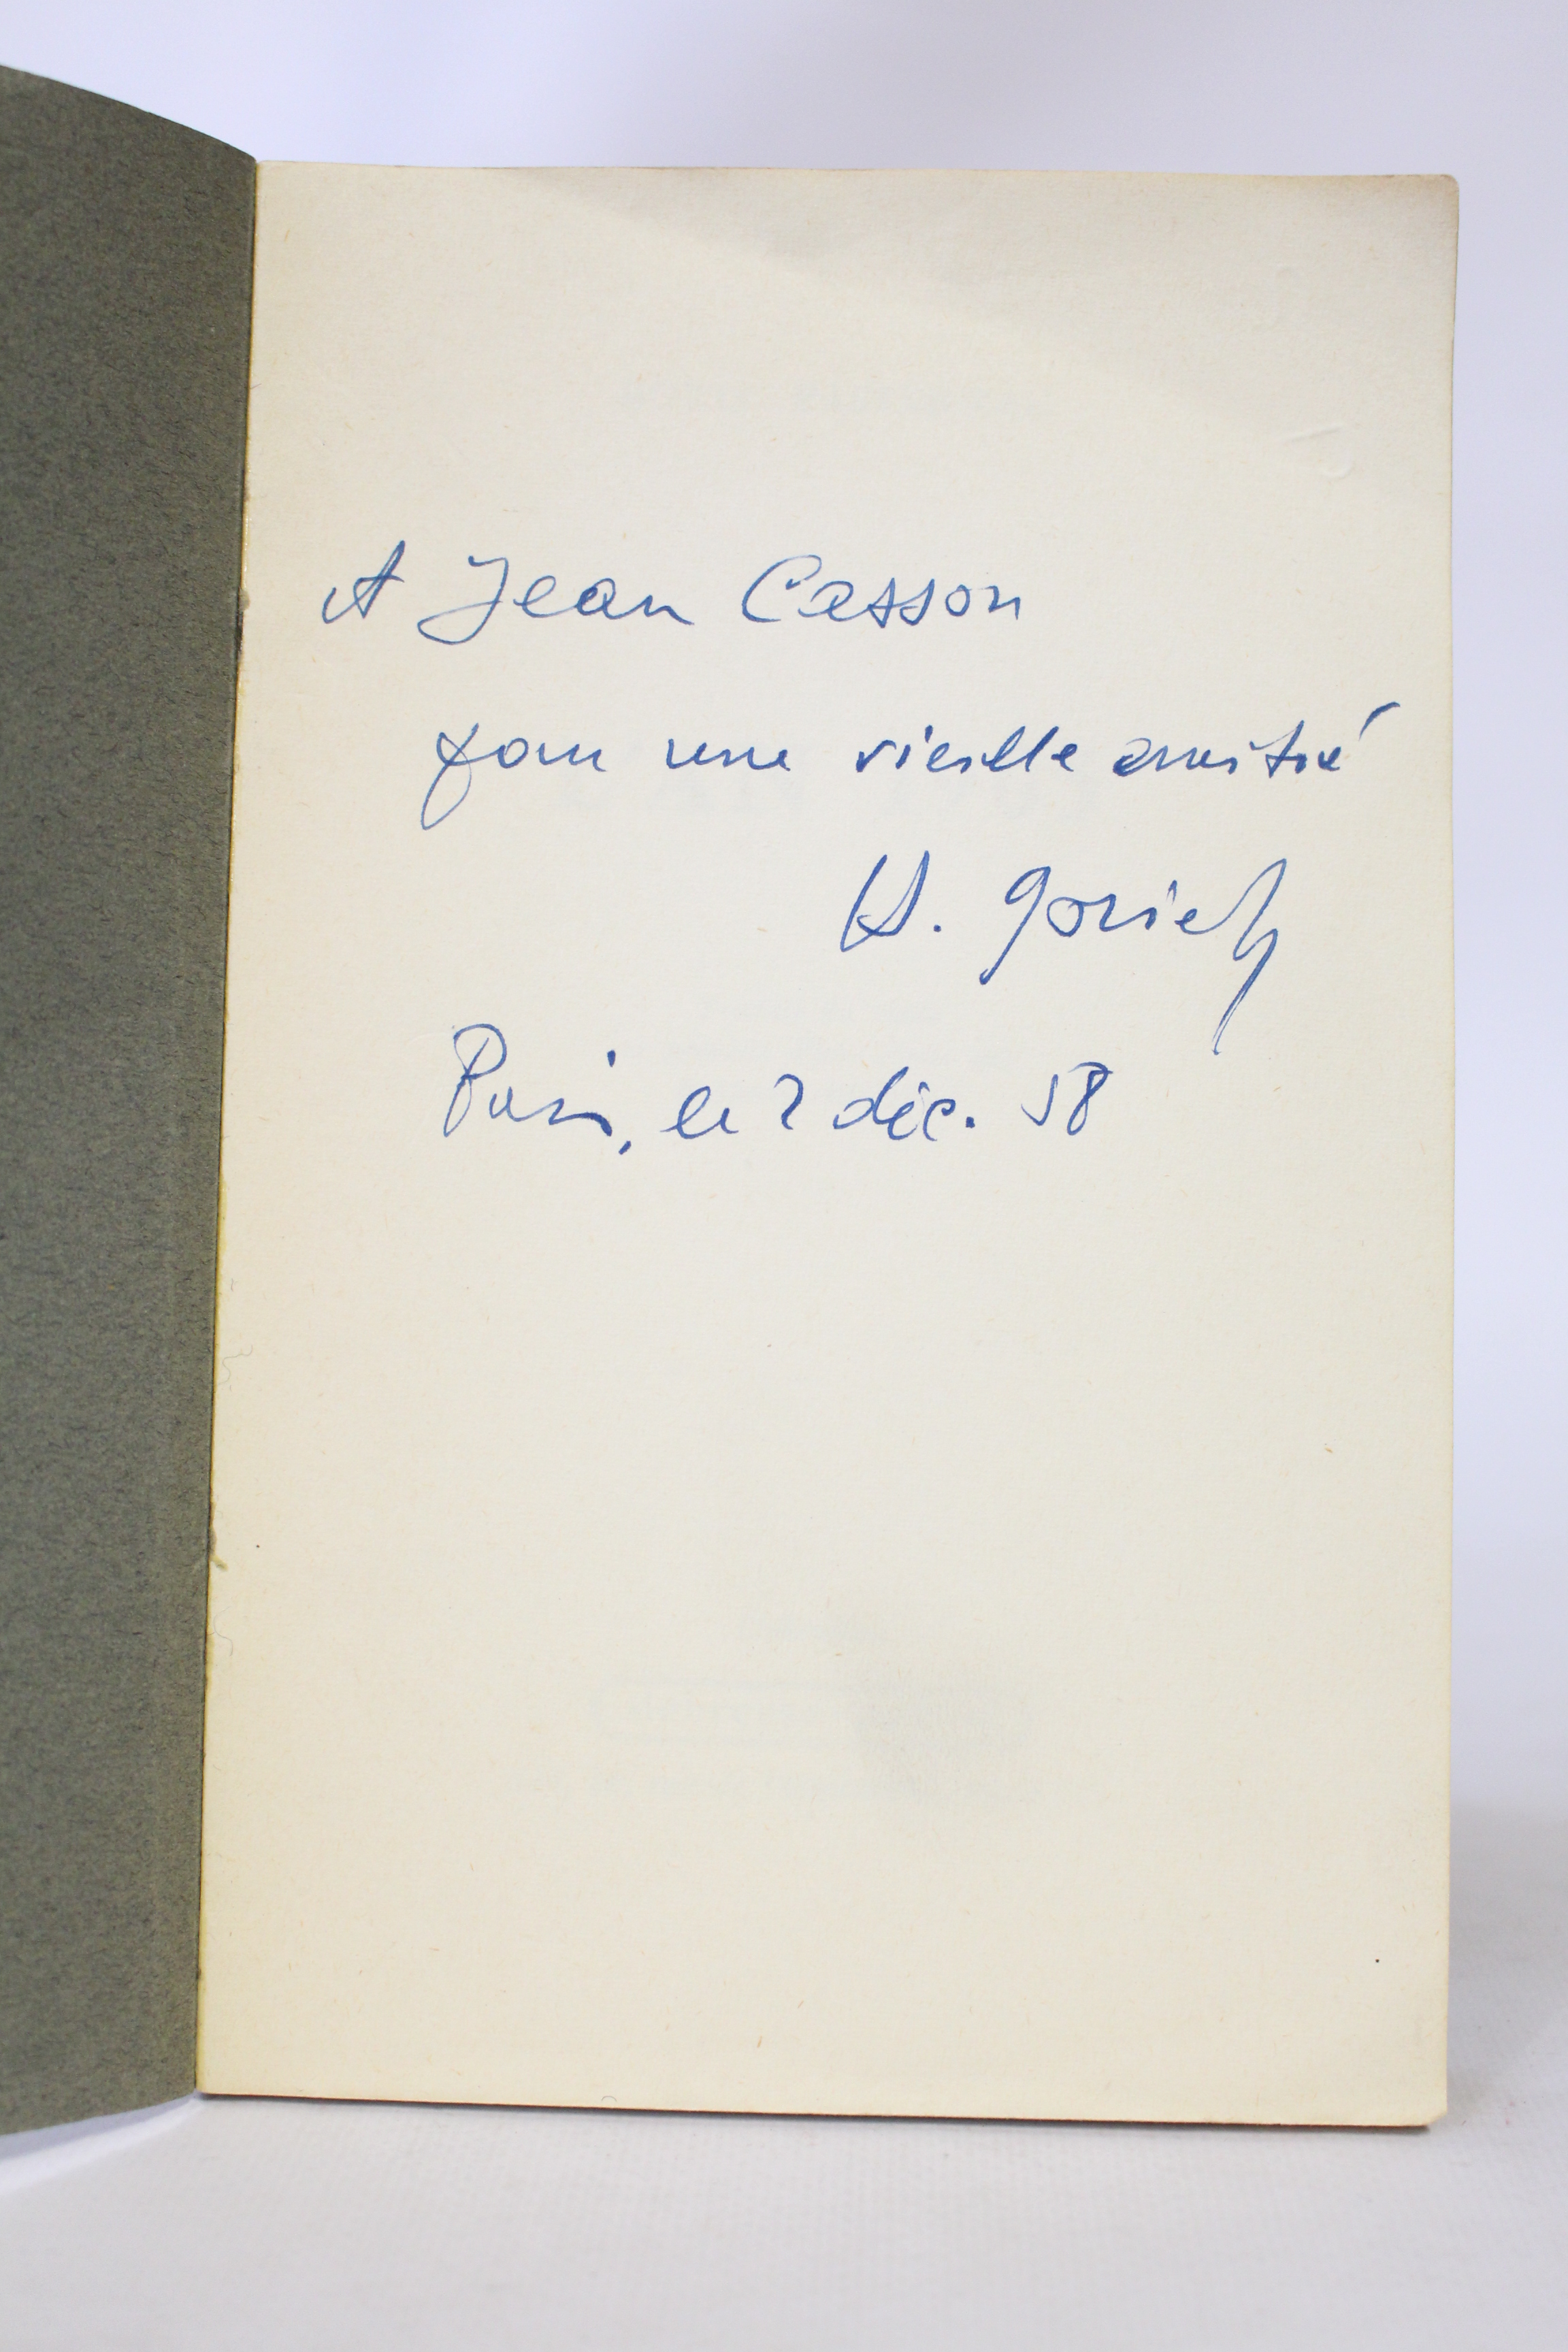 A Jean Cassou
pour une vieille amitié
H. Goriely
Paris, le 2 déc. 58